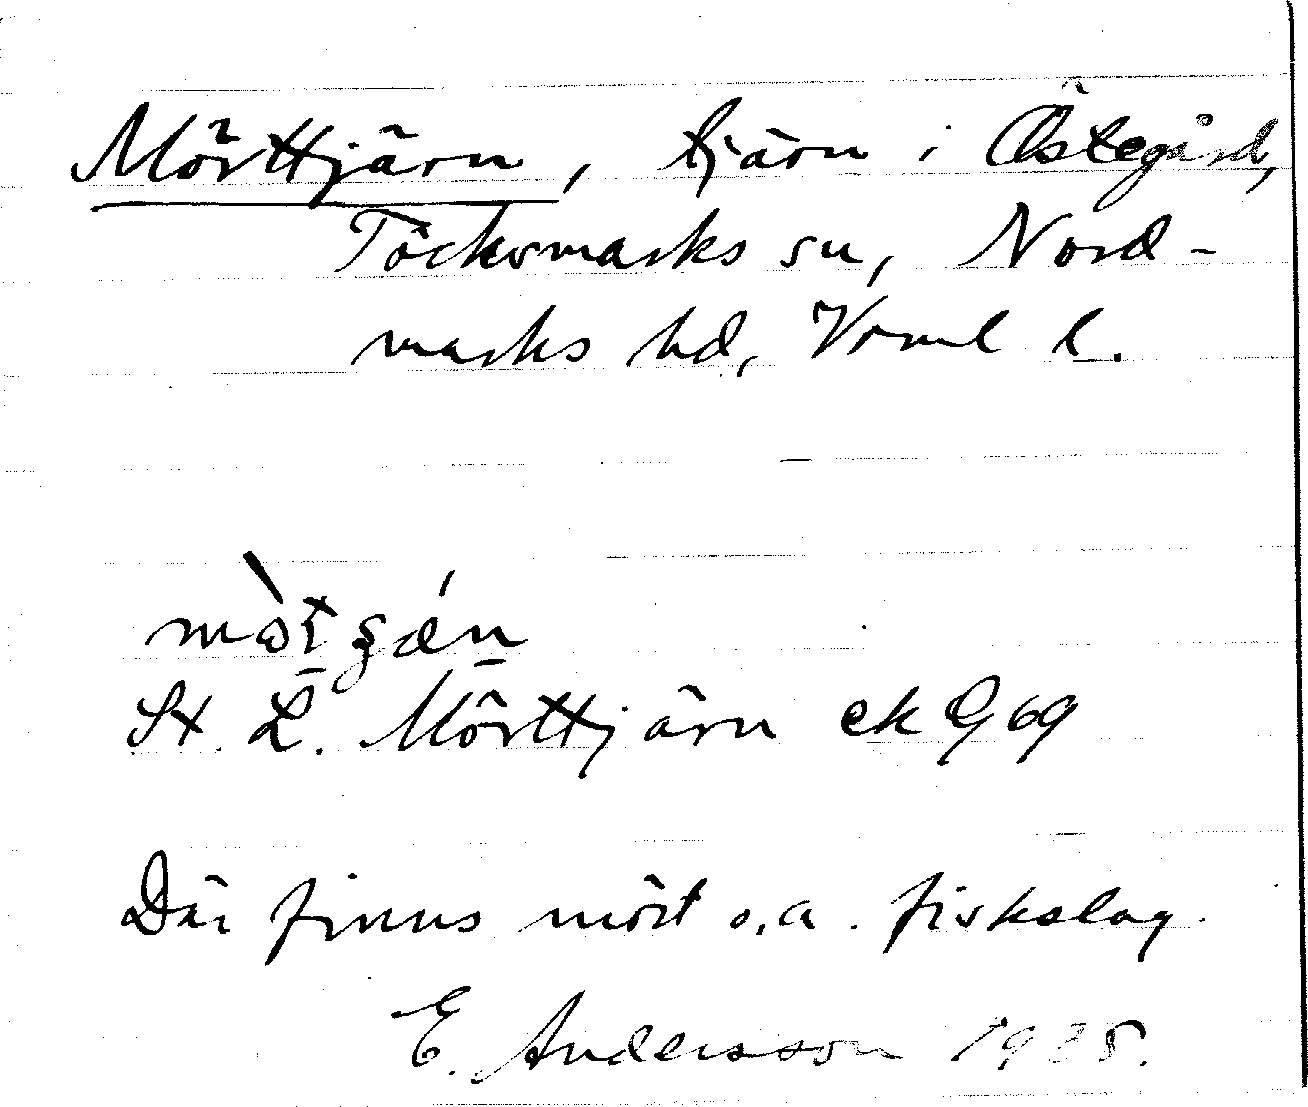 Mörttjärn, tjärn i Östegård,
Töcksmarks sn, Nord-
marks hd, Vrml l.
St. L. Mörttjärn ek Q 69
Där finns mört o.a. fiskslag.
E. Andersson 1935.